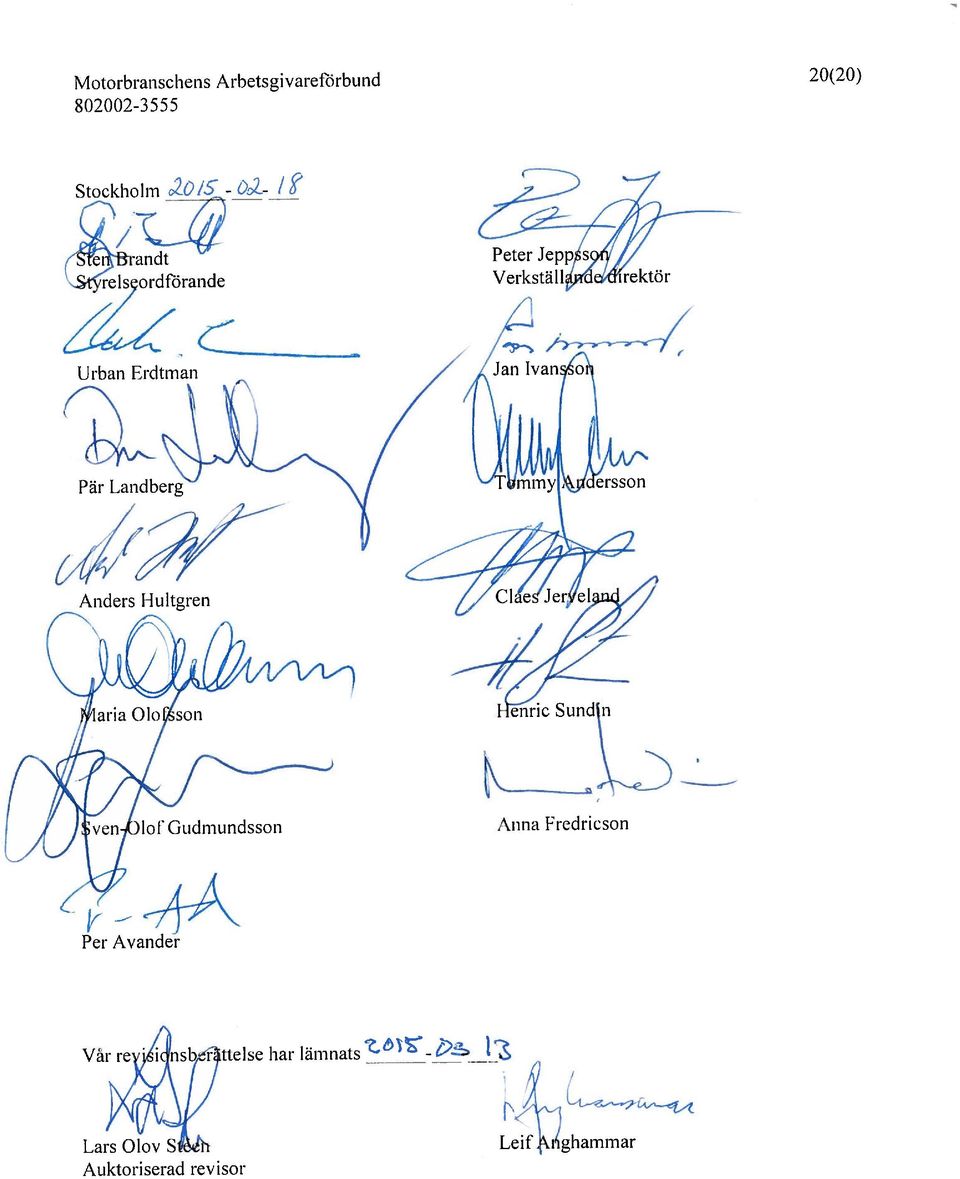 Motorbranschens Arbetsgivareförbund
802002-3555
20(20)
Stockholm 2015-02-18
Sten Brandt
Styrelseordförande
Peter Jeppsson
Verkställande direktör
Urban Erdtman
Jan Ivansson
Pär Landberg
Tommy Andersson
Anders Hultgren
Claes Jerveland
Maria Olofsson
Henric Sundin
Sven-Olof Gudmundsson
Anna Fredricson
Per Avander
Vår revisionsberättelse har lämnats 2015-03 13
Lars Olov Steen
Auktoriserad revisor
Leif Anghammar